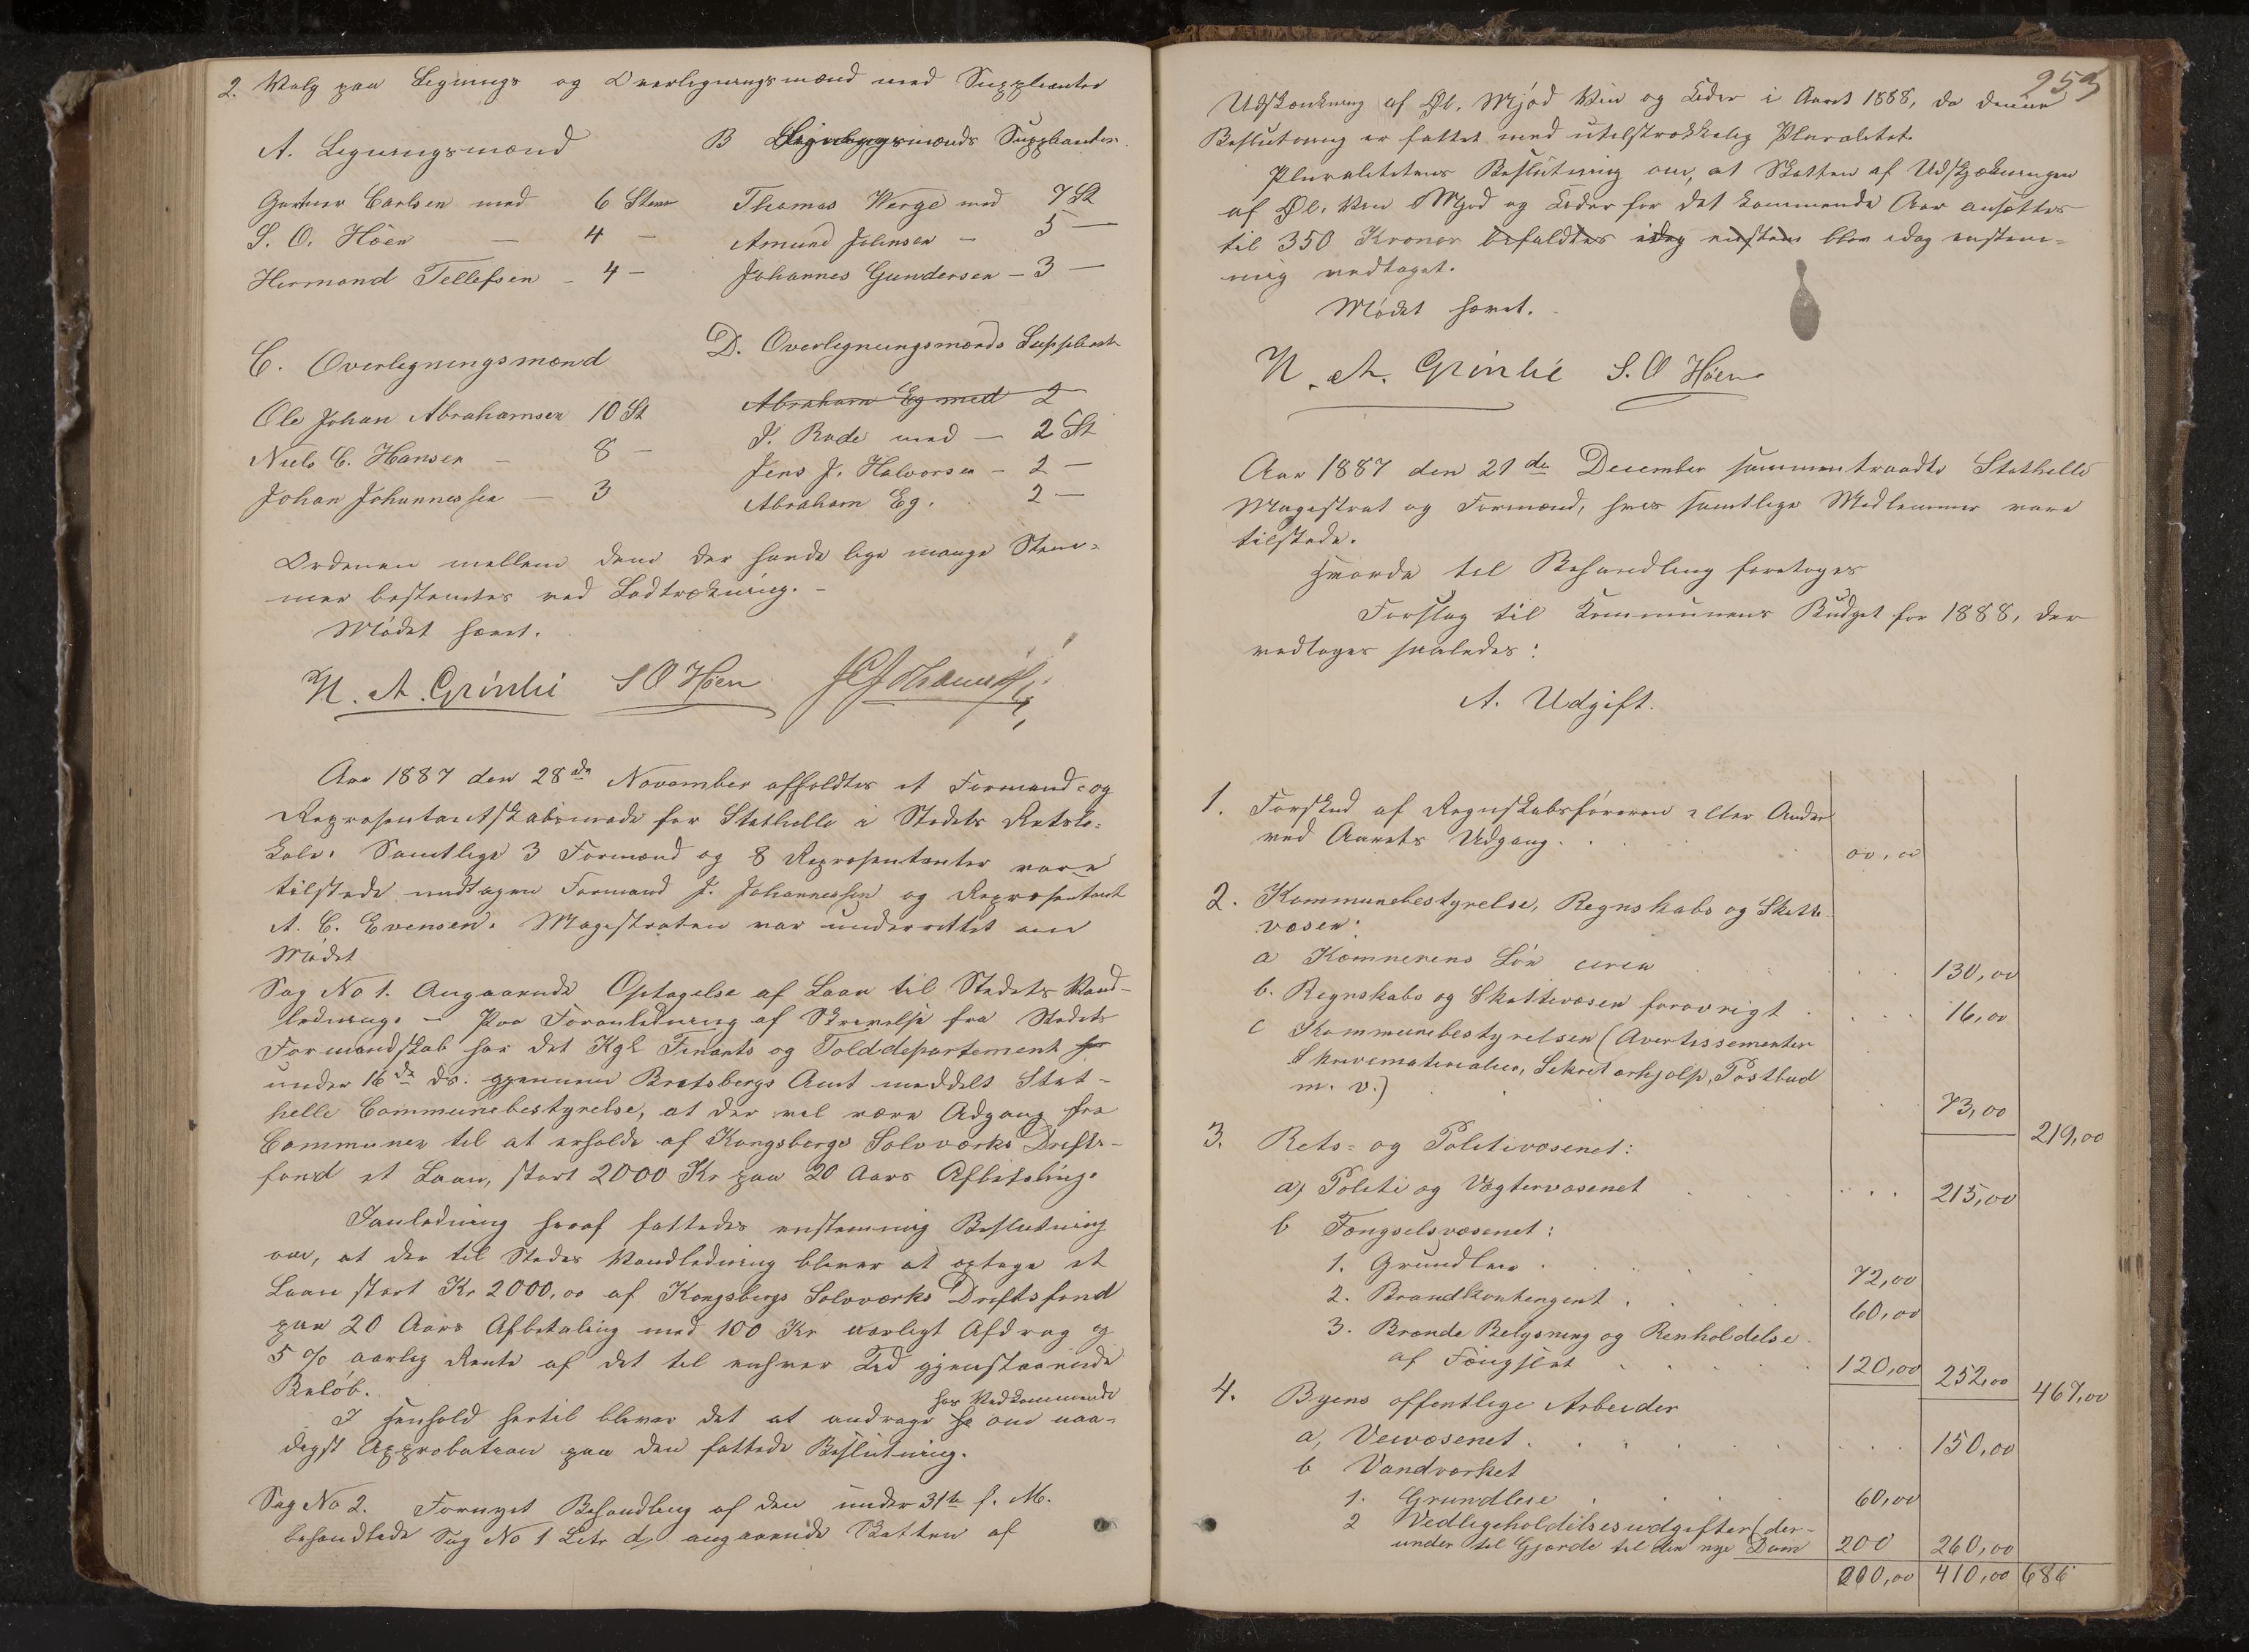 2. Valg paa Lignings og Overligningsmænd med Suppleanter
A. Ligningsmænd
Gartner Carlsen med 6 Stem
S. O. Höen — 4 —
Hermand Tellefsen — 4 —
B Ligningsmænds Suppleanter.
Thomas Werge med 7 St
Amund Johnsen — 5 —
Johannes Gundersen — 3 —
C. Overligningsmænd
Ole Johan Abrahamsen 10 St
Niels C. Hansen — 8 —
Johan Johannessen — 3
D. Overligningsmænds Suppleant
Abraham Eg med 2
J. Rode med — 2 St
Jens J. Halvorsen — 2 —
Abraham Eg. 2 —
Ordenen mellem dem der havde lige mange Stem-
mer bestemtes ved Lodtrækning. —
Mödet hævet.
N. A. Grinlie S O Höen
Aar 1887 den 28de November afholdtes et Formand- og
Repræsentantskabsmøde for Stathelle i Stedets Retslo-
kale. Samtlige 3 Formænd og 8 Repræsentanter vare
tilstede undtagen Formand J. Johannessen og Repræsentant
A. C. Evensen. Magistraten var underrettet om
Mödet
Sag No 1. Angaaende Optagelse af Laan til Stedets Vand-
ledning. — Paa Foranledning af Skrivelse fra Stedets
Formandskab har det Kgl. Finants og Tolddepartement har
under 16de ds. gjennem Bratsbergs Amt meddelt Stat-
helle Communebestyrelse, at der vil være Adgang for
Communen til at erholde af Kongsbergs Sølvværks Drifts-
fond et Laan, stort 2000 Kr paa 20 Aars Afbetaling.
I Anledning heraf fattedes enstemmig Beslutning
om, at der til Stedes Vandledning bliver at optage et
Laan stort Kr 2000,00 af Kongsbergs Sölvværks Driftsfond
paa 20 Aars Afbetaling med 100 Kr aarligt Afdrag og
5 % aarlig Rente af det til enhver Tid gjenstaaende
Belöb.
hos Vedkommende
I Henhold hertil bliver det at andrage om naa-
digst Approbation paa den fattede Beslutning.
Sag No 2. Fornyet Behandling af den under 31te f. M.
behandlede Sag No 1 Litr d, angaaende Skatten af
953
Udskænkning af Øl, Mjød Vin og Cider i Aaret 1888, da denne
Beslutning er fattet med utilstrækkelig Pluralitet.
Pluralitetens Beslutning om, at Skatten af Udskjænkningen
af Øl, Vin Mjød og Cider for det kommende Aar ansættes
til 350 Kroner bifaldtes idag enstem blev idag enstem-
mig vedtaget.
Mödet hævet.
N. A. Grinlie S. O Höen
Aar 1887 den 21de December sammentraadte Stathelle
Magistrat og Formænd, hvis samtlige Medlemmer vare
tilstede.
Hvorda til Behandling foretoges
Forslag til Kommunens Budget for 1888, der
vedtoges saaledes:
A. Udgift.
1. Forskud af Regnskabsföreren eller Andre
ved Aarets Udgang . . 00,00
2. Kommunebestyrelse, Regnskabs og Skatte-
væsen:
a Kæmnerens Lön circa . . 130,00
b. Regnskabs og Skattevæsen forøvrigt . . 16,00
c Kommunebestyrelsen (Avertissementer
Skrivematerialier, Sekretærhjælp, Postbud
m. v.) . . 73,00 219,00
3. Rets- og Politivæsenet:
a, Politi og Vægtervæsenet . . 215,00
b Fængselsvæsenet:
1. Grundleie . . 72,00
2. Brandkontingent . . 60,00
3. Brænde Belysning og Renholdelse
af Fængslet . . 120,00 252,00 467,00
4. Byens offentlige Arbeider
a, Veivæsenet . . 150,00
b Vandværket
1. Grundleie . . 60,00
2 Vedligeholdelsesudgifter (der-
under til Gjærde til den nye Dam 200 260,00
260,00 410,00 686